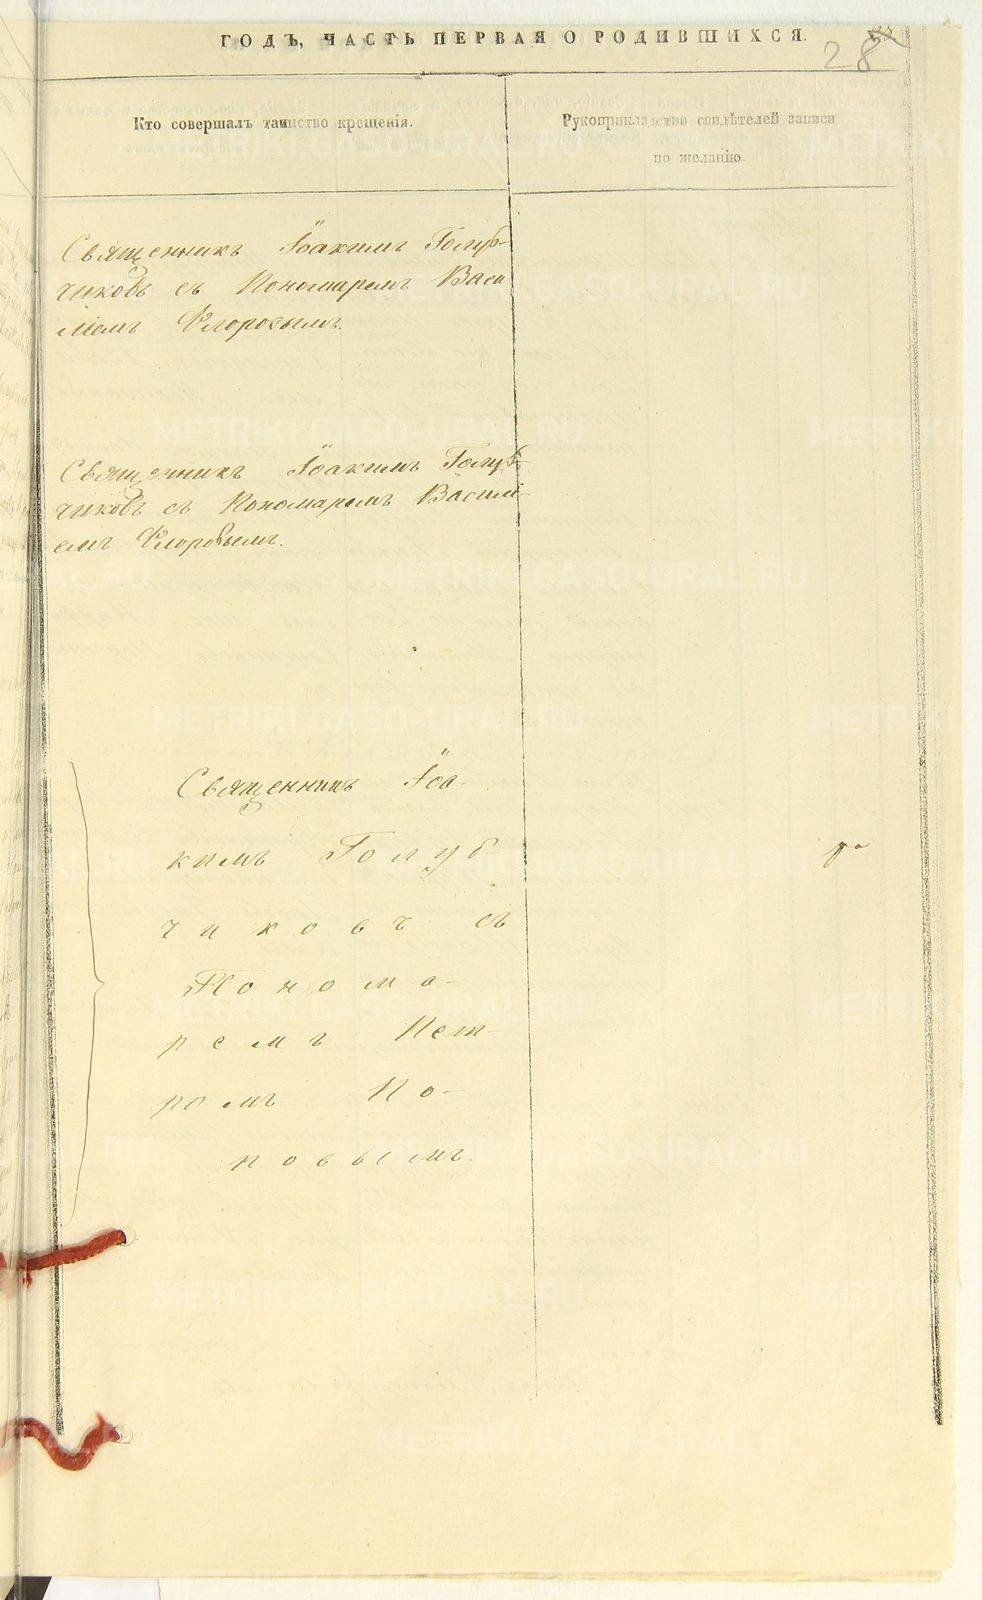 ГОДЪ, ЧАСТЬ ПЕРВАЯ О РОДИВШИХСЯ.
28
Кто совершалъ таинство крещенія.
Рукоприкладство свидѣтелей записи
по желанію
Священникъ Іоакимъ Голуб-
чиковъ съ Пономаремъ Васи
ліемъ Флоровымъ.
Священникъ Іоакимъ Голуб-
чиковъ съ Пономаремъ Василі-
емъ Флоровымъ.
Священникъ Іоа-
кимъ Голуб
чиковъ съ
Понома-
ремъ Пет-
ромъ По-
повымъ.
METRIKI.GASO-URAL.RU